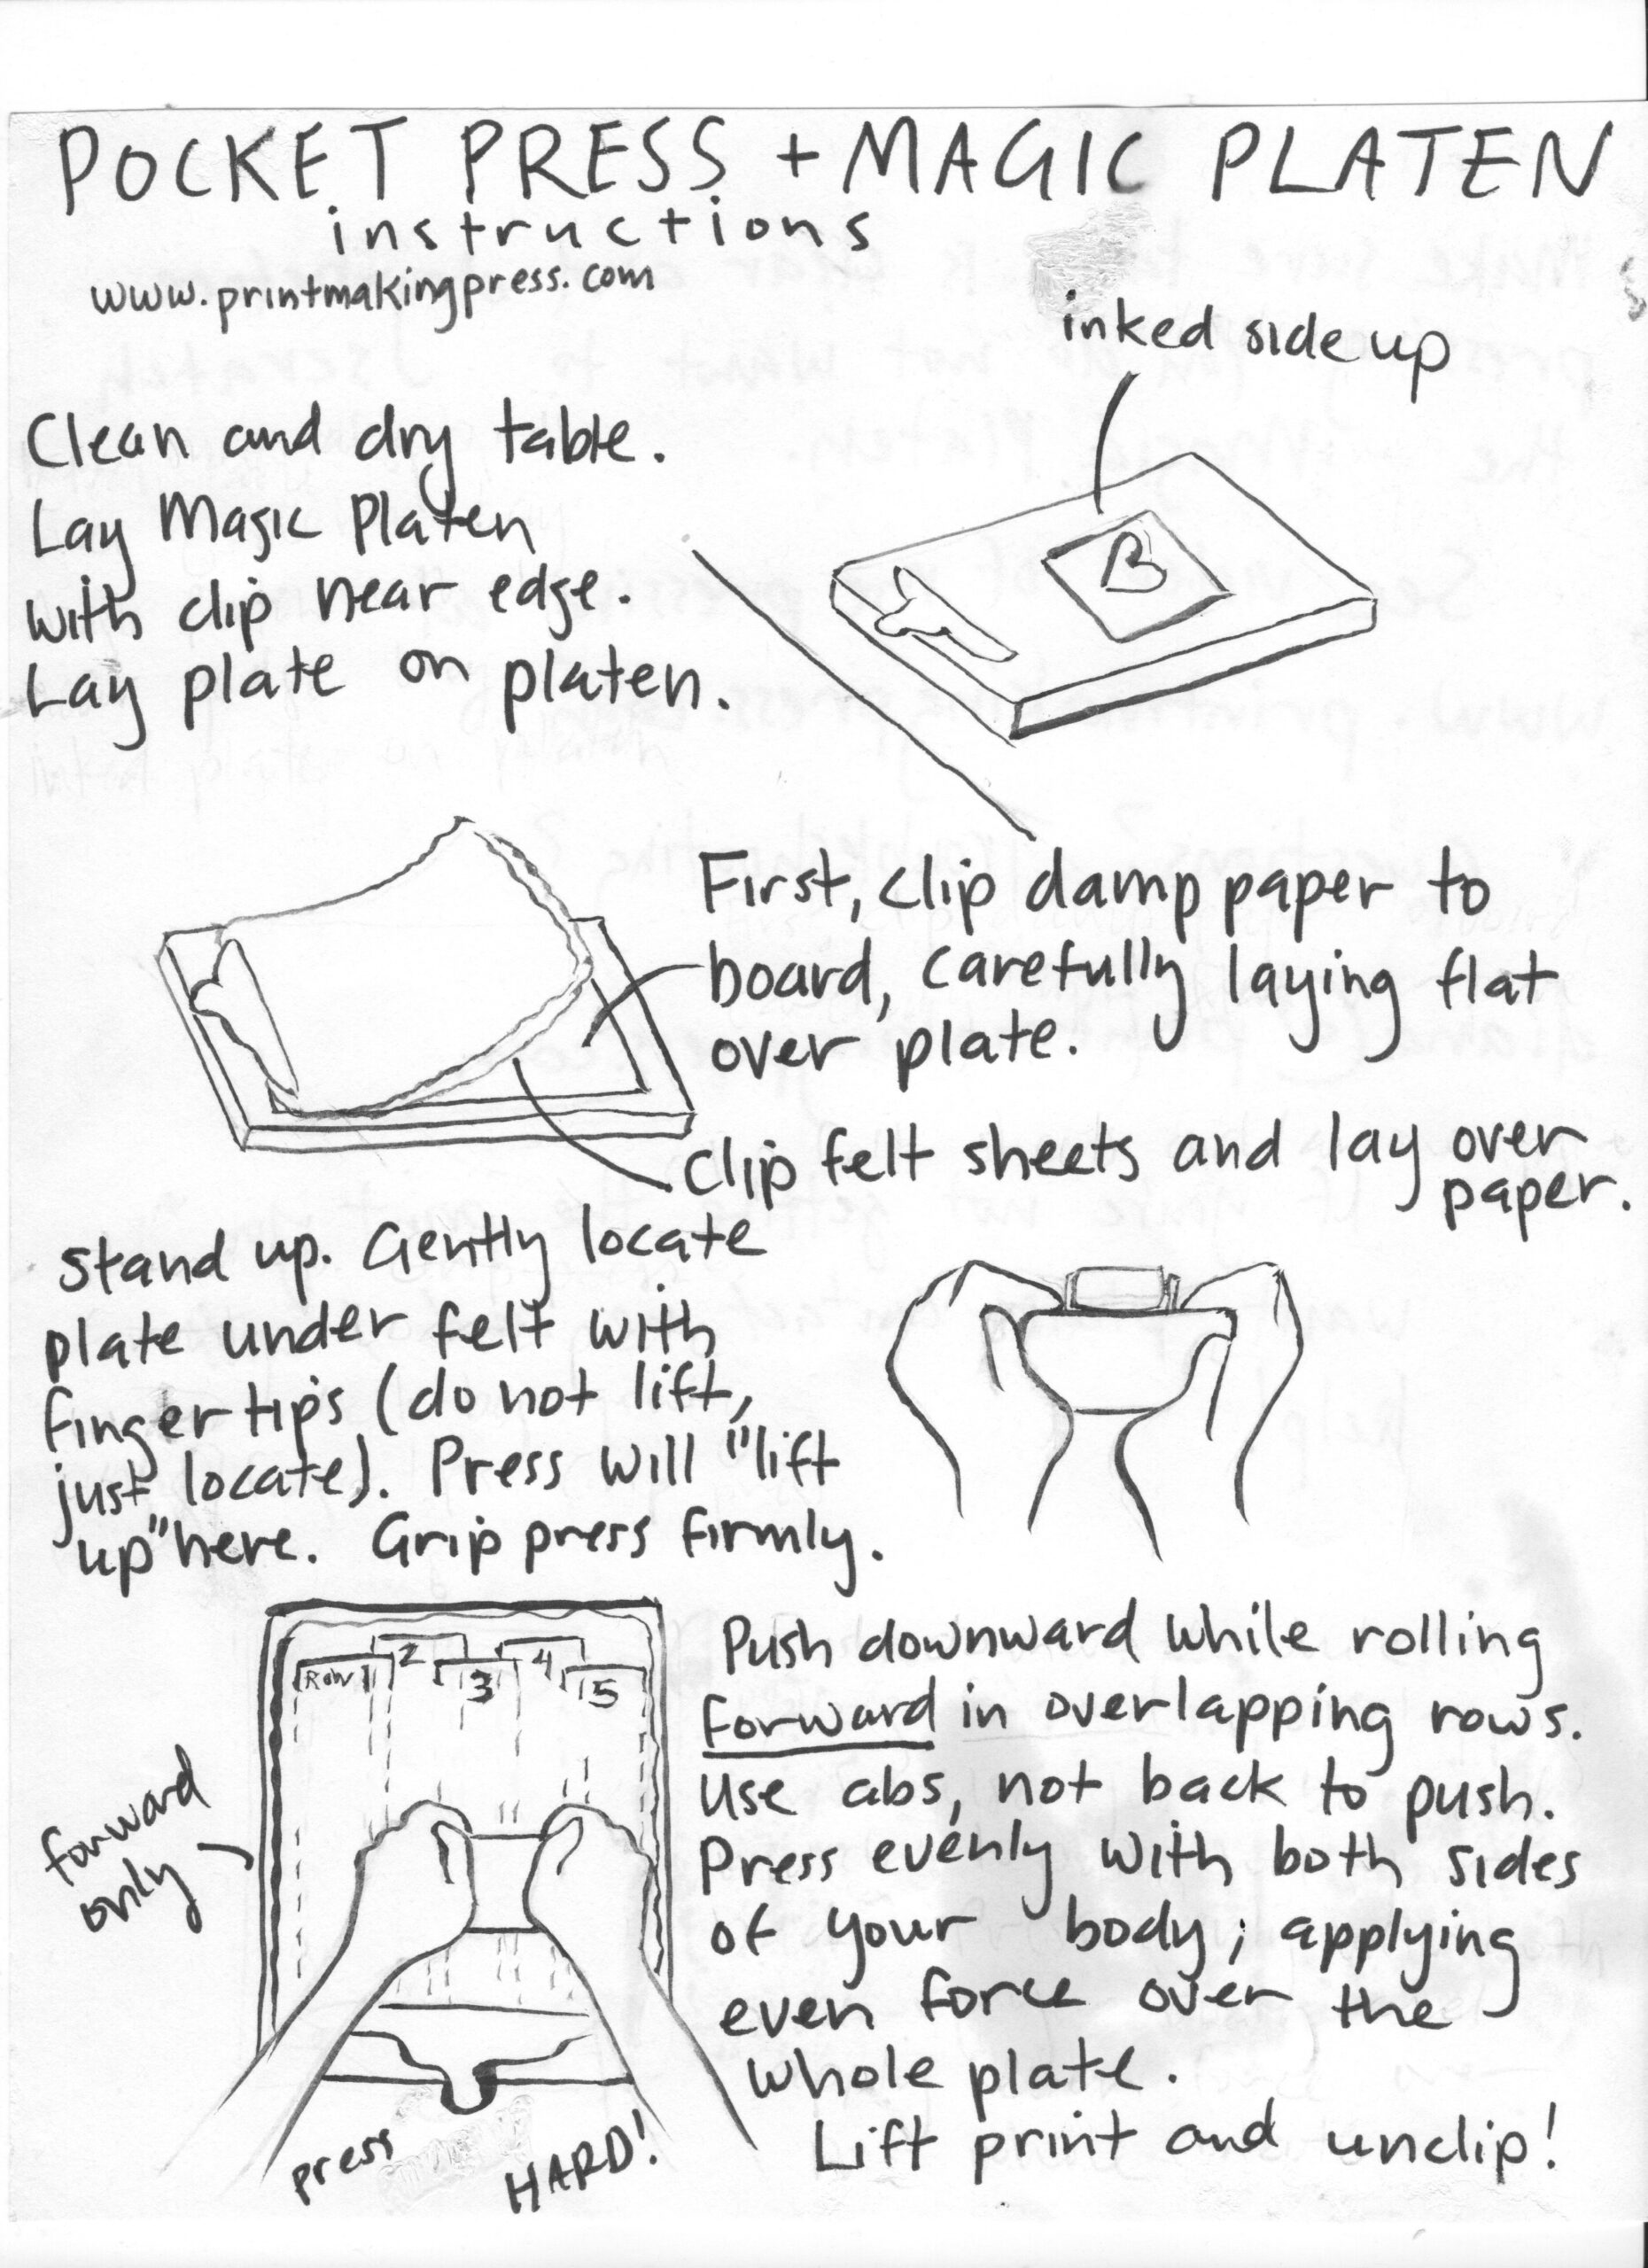 POCKET PRESS + MAGIC PLATEN
instructions
www.printmakingpress.com
inked side up
Clean and dry table.
Lay Magic Platen
with clip near edge.
Lay plate on platen.
B
First, clip damp paper to
board, carefully laying flat
over plate.
Clip felt sheets and lay over
paper.
Stand up. Gently locate
plate under felt with
fingertips (do not lift,
just locate). Press will "lift
up" here. Grip press firmly.
Row 1 2 3 4 5
forward
only
press HARD!
Push downward while rolling
forward in overlapping rows.
Use abs, not back to push.
Press evenly with both sides
of your body; applying
even force over the
whole plate.
Lift print and unclip!